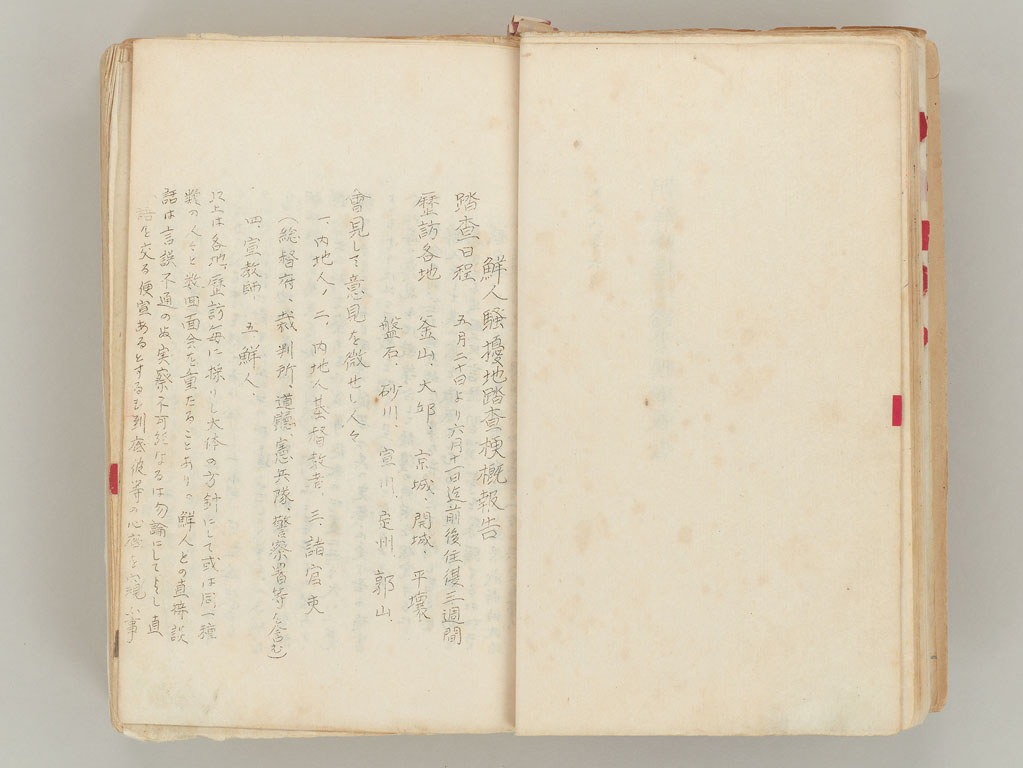 鮮人騒擾地踏査梗概報告
踏査日程　五月二十日より六月十一日迄前後往復三週間
歴訪各地　釜山、大邱、京城、開城、平壌
盤石、砂川、宣川、定州、郭山、
會見して意見を徴せし人々
一、内地人、二、内地人基督教者、三、諸官吏
（総督府、裁判所、道廳、憲兵隊、警察署等を含む）
四、宣教師　五、鮮人、
以上は各地、歴訪毎に採りし大体の方針にして或は同一種
類の人々と数回面会を重たることあり。鮮人との直接談
話は言語不通の為実察不可能なるは勿論にしてよし直
話を交る便宜あるとするも到底彼等の心底を